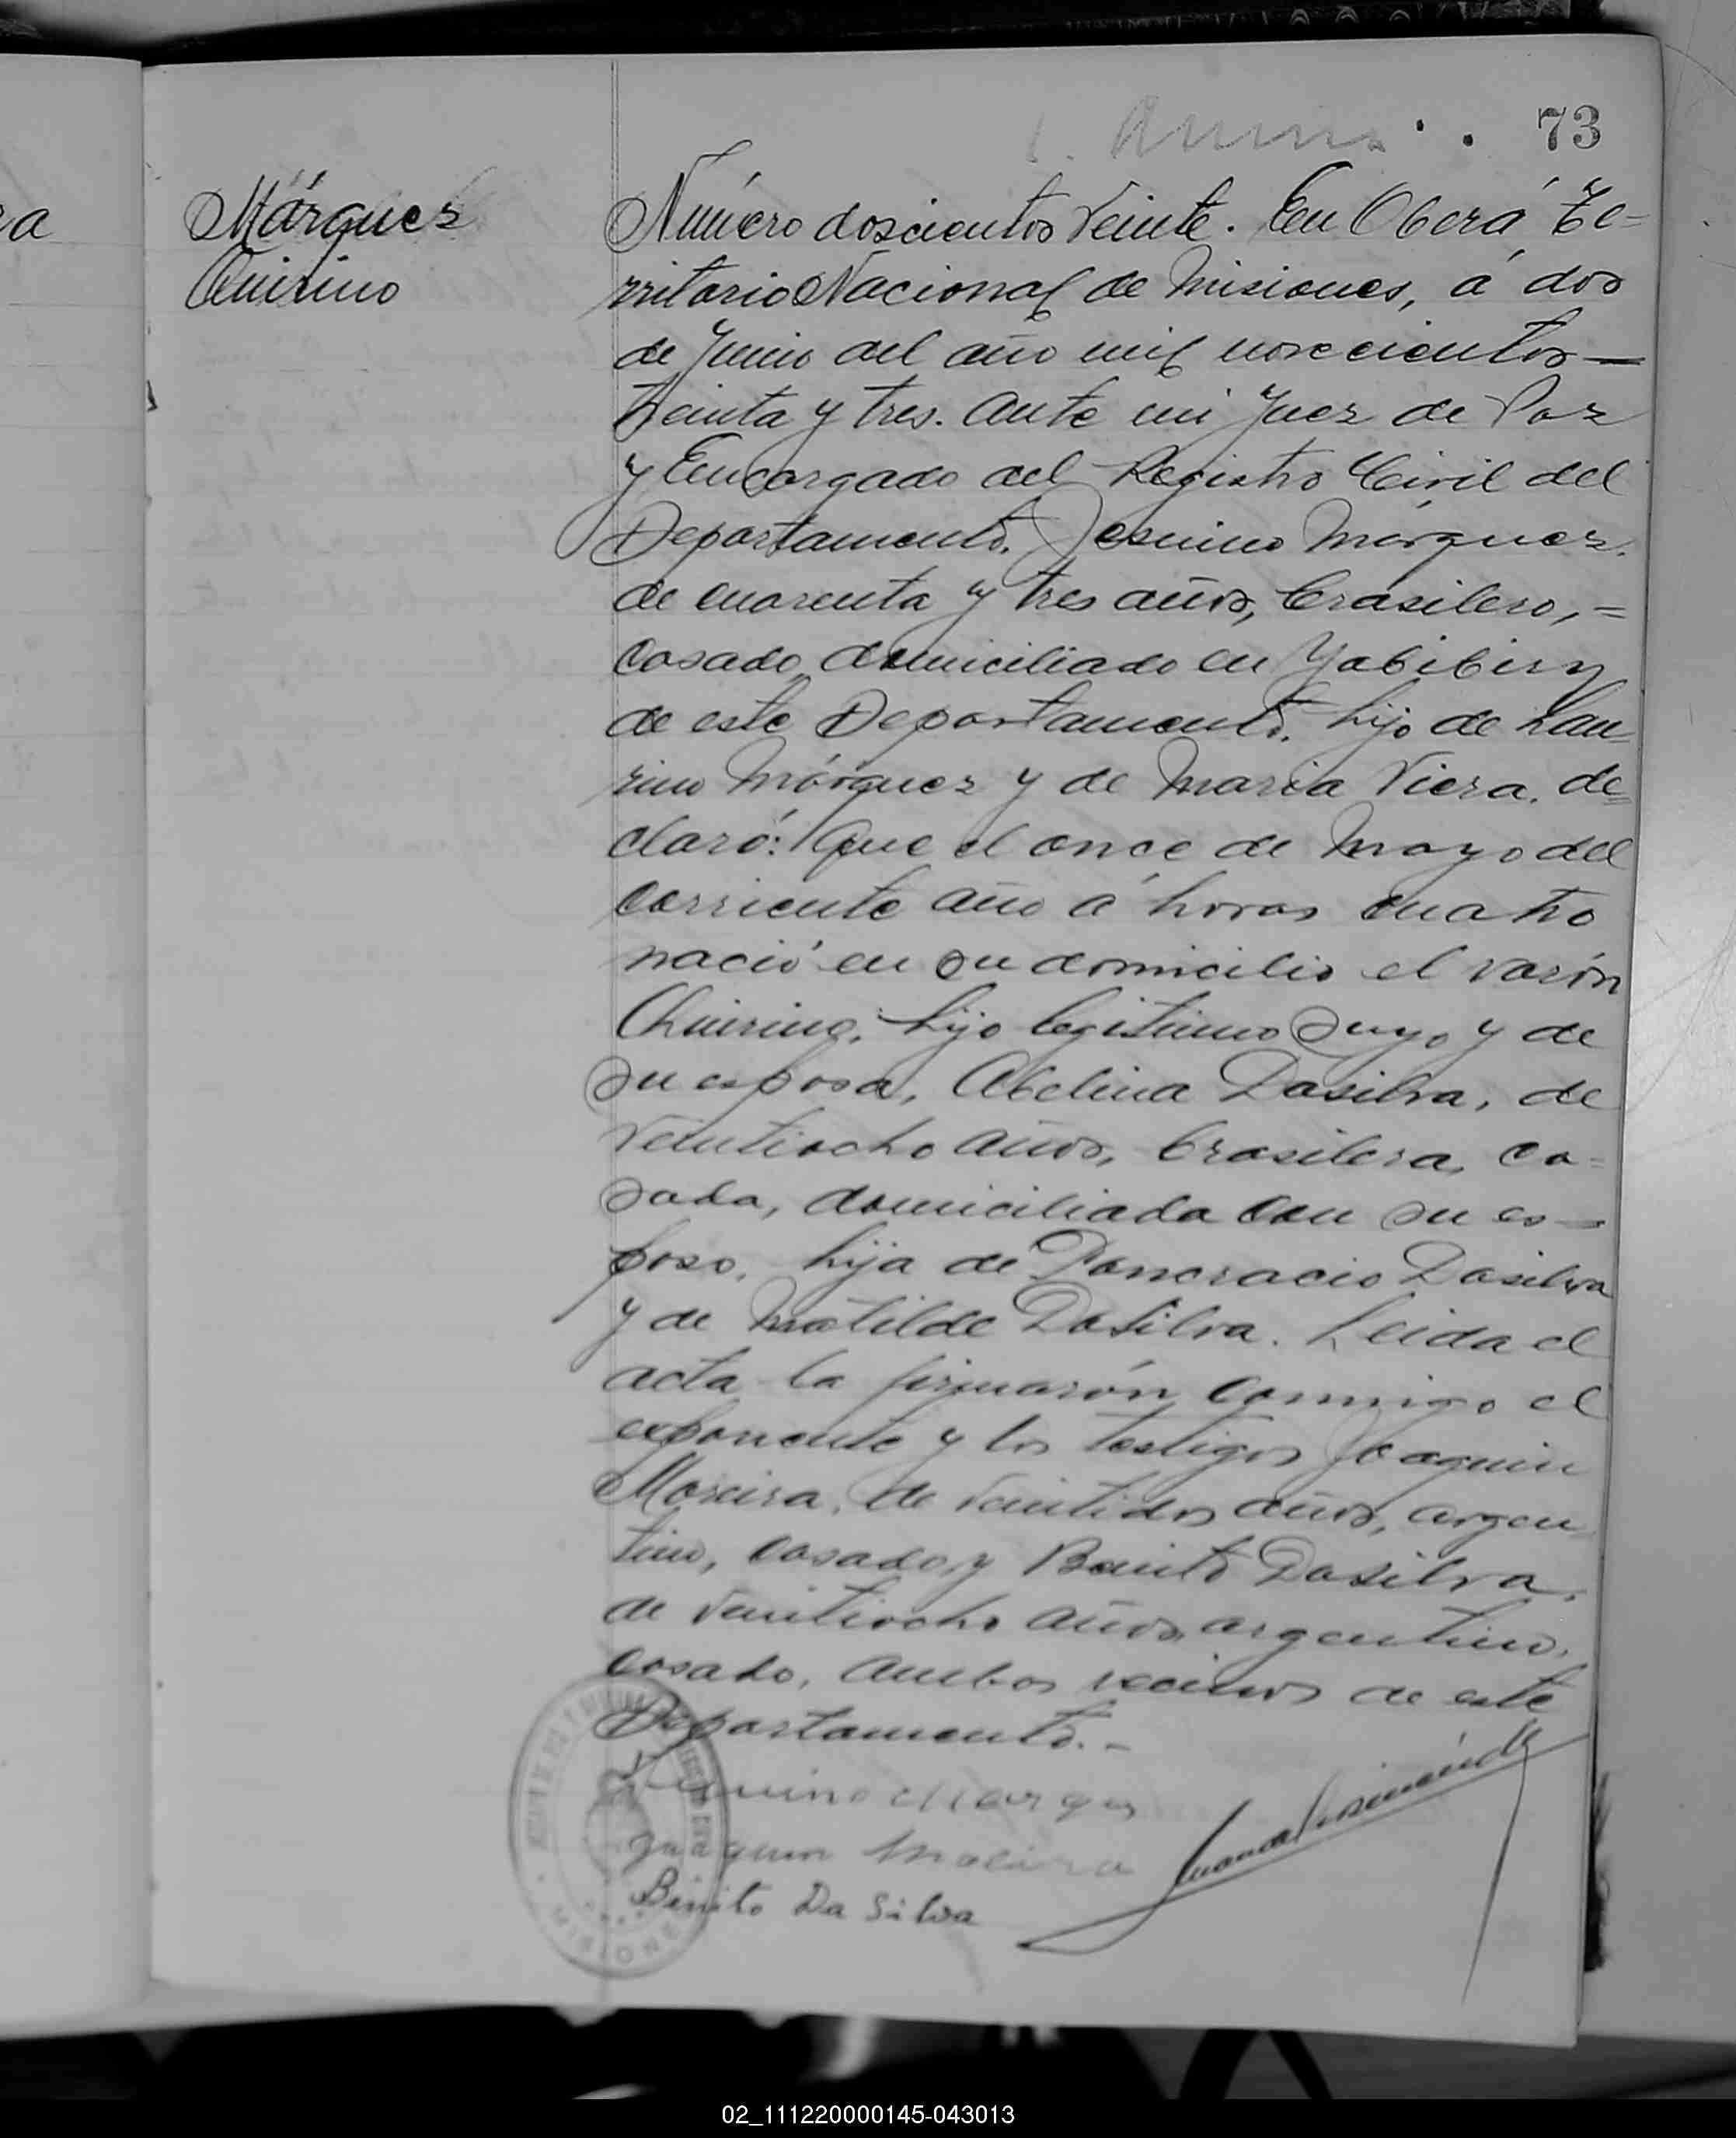 73
Márquez
Quirino
Número doscientos veinte. En Oberá, Te-
rritorio Nacional de Misiones, á dos
de Junio del año mil novecientos—
treinta y tres. Ante mi Juez de Paz
y Encargado del Registro Civil del
Departamento. Márquez.
de cuarenta y tres años, brasilero,=
casado, domiciliado en Yabibiry
de este Departamento. hijo de Lau-
rino Márquez y de Maria Viera. de=
claró: Que el once de Mayo del
corriente año á horas cuatro
nació en su domicilio el varón
Quirino, hijo legitimo suyo y de
su esposa, Abelina Dasilva, de
veintiocho años, brasilera, ca-
sada, domiciliada con su es—
poso, hija de Pancracio Dasilva
y de Matilde DaSilva. Leida el
acta la firmarón conmigo el
exponente y los testigos Joaquin
Moreira, de veintidos años, argen
tino, casado y Benito Dasilva.
de veintiocho años, argentino,
casado, ambos vecinos de este
Departamento.-
Marques
Joaquin Moreira
Benito Da Silva
MISIONES
02_111220000145-043013